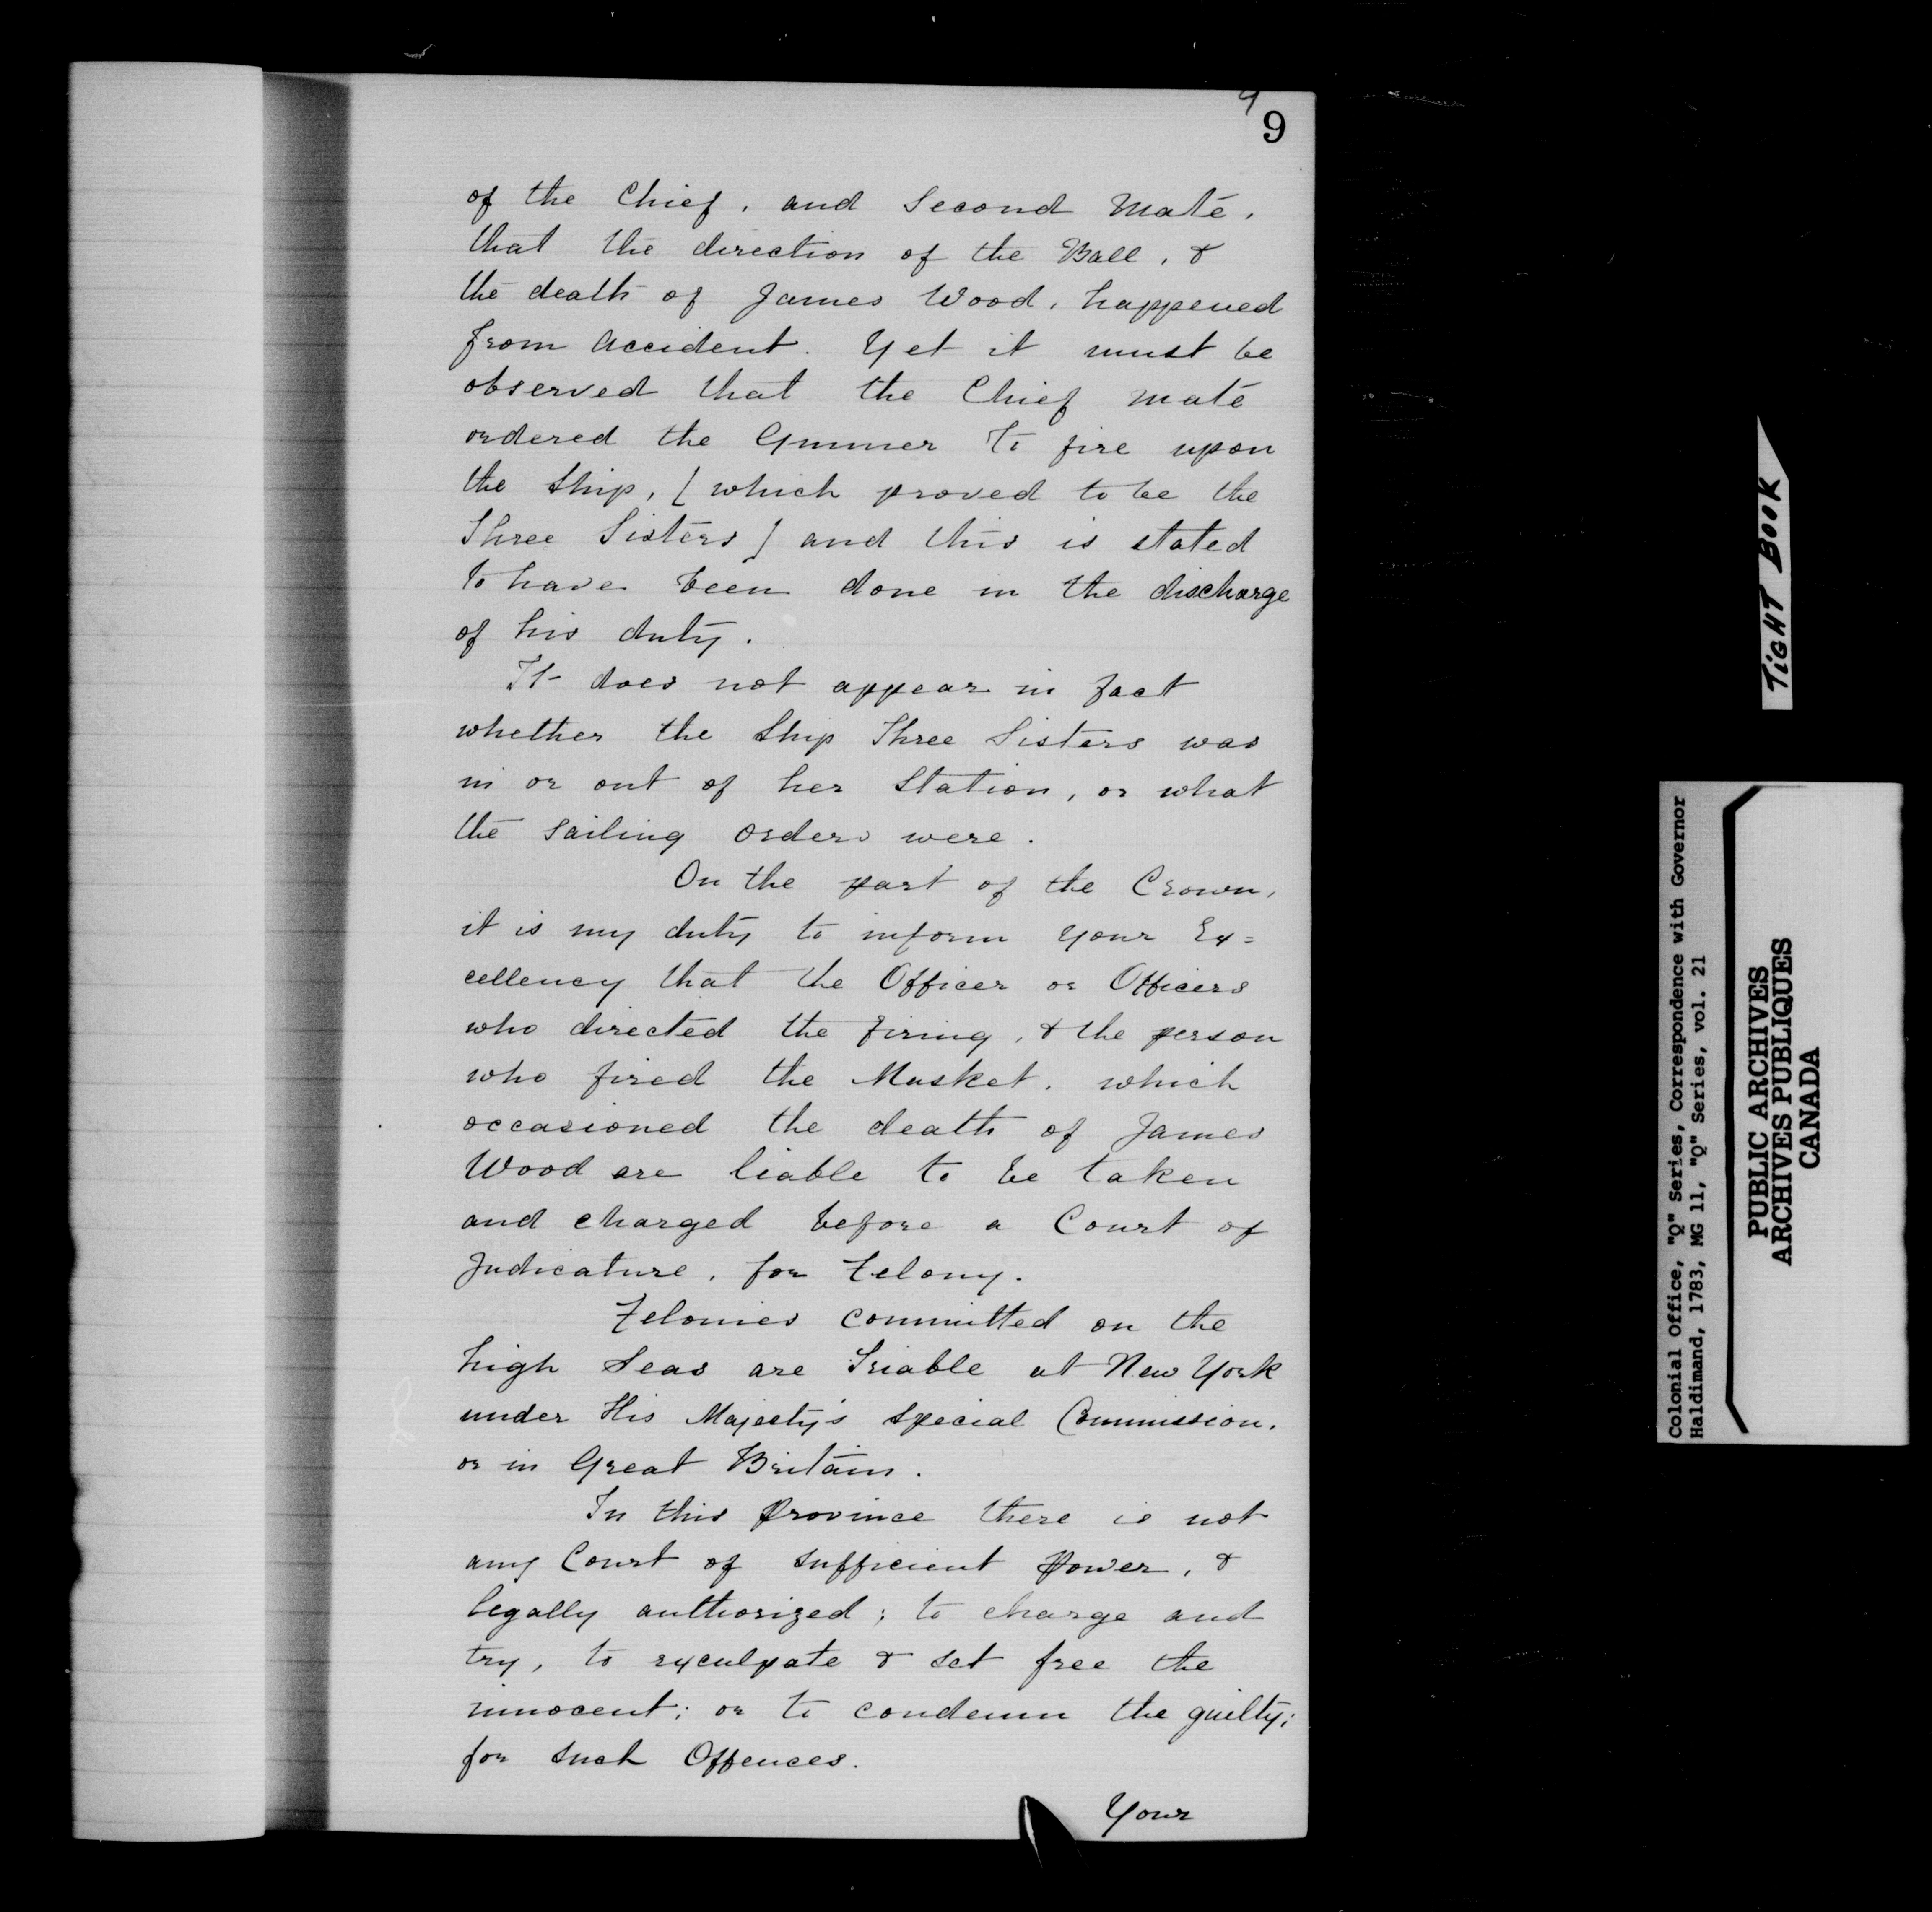 9
9
of the Chief, and Second Mate,
that the direction of the Ball, &
the death of James Wood, happened
from Accident. Yet it must be
observed that the Chief Mate
ordered the Gunner to fire upon
the Ship, [which proved to be the
Three Sisters] and this is stated
to have been done in the discharge
of his duty.
It does not appear in fact
whether the Ship Three Sisters was
in or out of her Station, or what
the Sailing Orders were.
On the part of the Crown,
it is my duty to inform Your Ex=
cellency that the Officer or Officers
who directed the Firing, & the person
who fired the Musket, which
occasioned the death of James
Wood are liable to be taken
and charged before a Court of
Judicature, for Felony.
Felonies committed on the
high Seas are Triable at New York
under His Majesty's Special Commission,
or in Great Britain.
In this Province there is not
any Court of Sufficient Power, &
legally authorized; to charge and
try, to exculpate & set free the
innocent; or to condemn the guilty;
for such Offences.
Your
TIGHT BOOK
Colonial Office, "Q" Series, Correspondence with Governor
Haldimand, 1783, MG 11, "Q" Series, vol. 21
PUBLIC ARCHIVES
ARCHIVES PUBLIQUES
CANADA